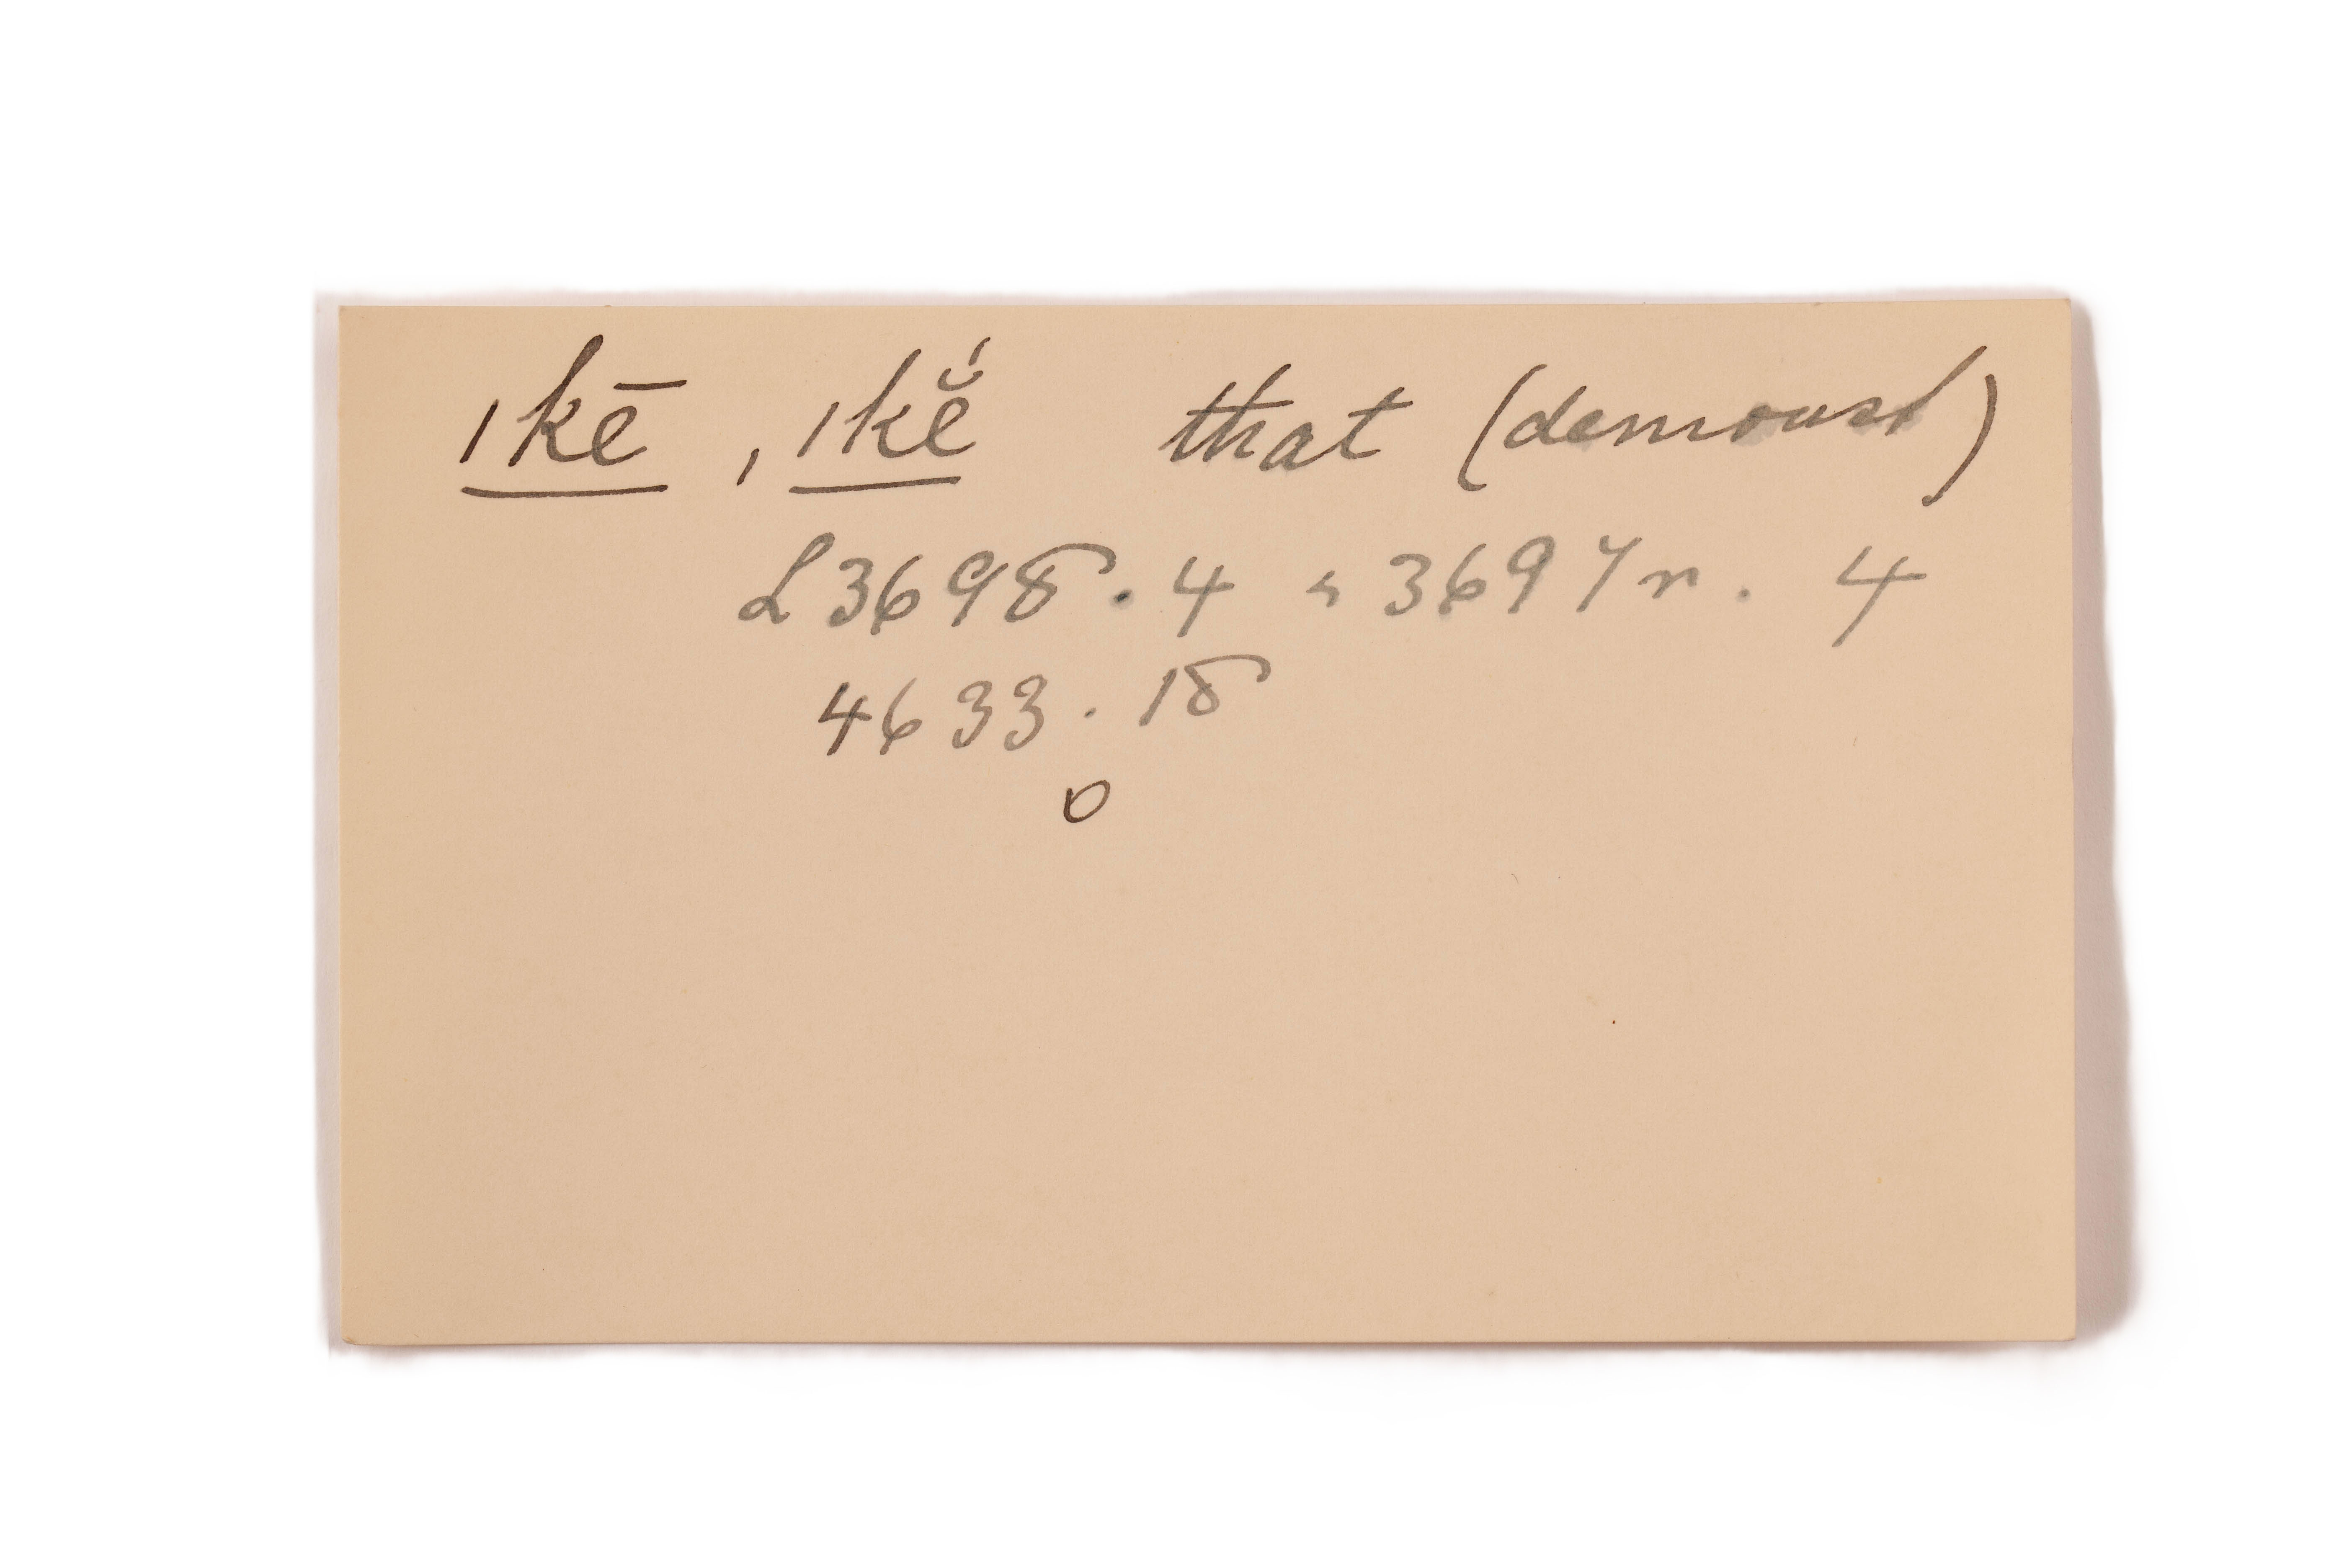 ıkē, ıkĕ́ that (demonst)
L3698.4 & 3697r. 4
4633.18
o